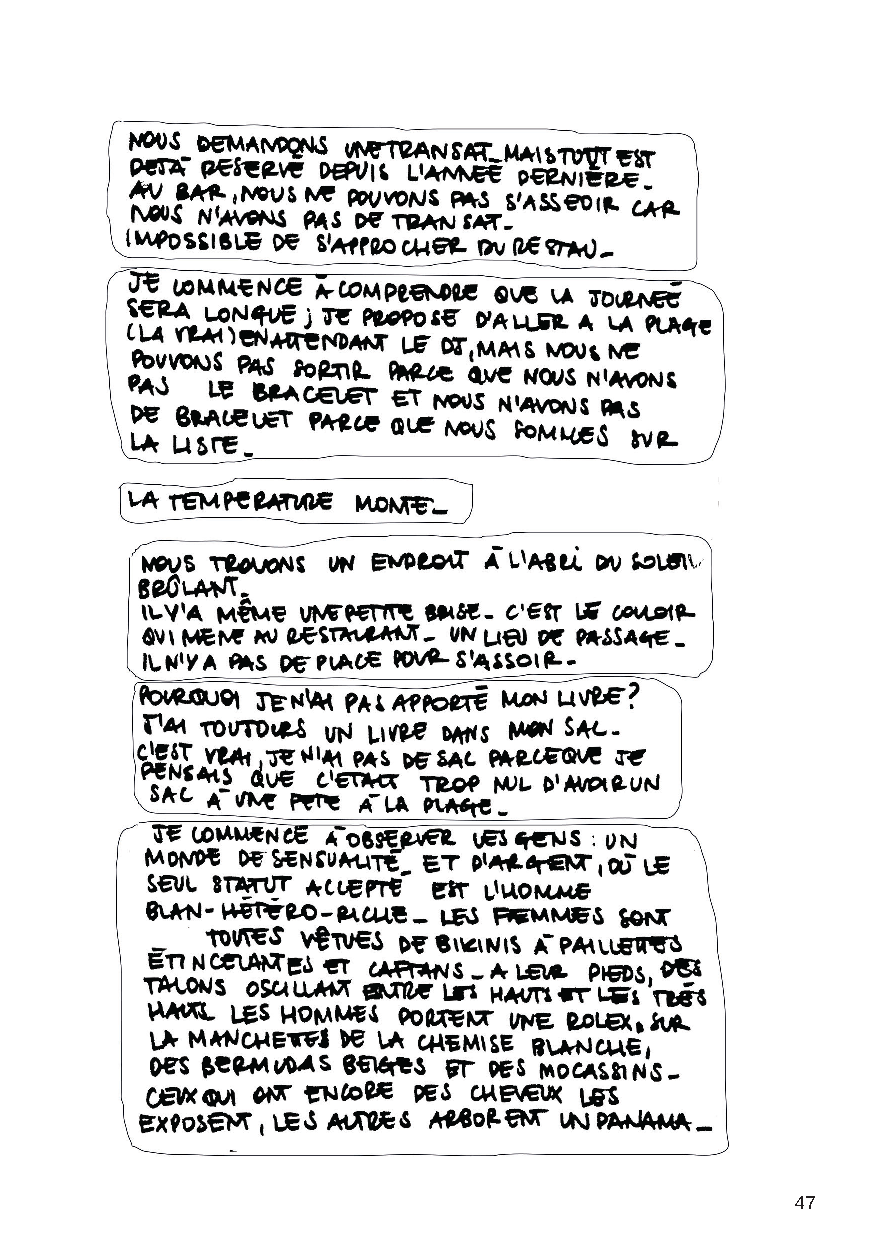 NOUS DEMANDONS UNE TRANSAT_ MAIS TOUT EST
DEJÀ RESERVÉ DEPUIS L'ANNÉE DERNIÈRE_
AU BAR, NOUS NE POUVONS PAS S'ASSEOIR CAR
NOUS N'AVONS PAS DE TRANSAT_
IMPOSSIBLE DE S'APPROCHER DU RESTAU_
JE COMMENCE À COMPRENDRE QUE LA JOURNÉE
SERA LONGUE; JE PROPOSE D'ALLER A LA PLAGE
(LA VRAI) EN ATTENDANT LE DJ, MAIS NOUS NE
POUVONS PAS SORTIR PARCE QUE NOUS N'AVONS
PAS LE BRACELET ET NOUS N'AVONS PAS
DE BRACELET PARCE QUE NOUS SOMMES SUR
LA LISTE_
LA TEMPERATURE MONTE_
NOUS TROUVONS UN ENDROIT À L'ABRI DU SOLEIL
BRÛLANT_
IL Y'A MÊME UNE PETITE BRISE_ C'EST LE COULOIR
QUI MENE AU RESTAURANT_ UN LIEU DE PASSAGE_
IL N'Y A PAS DE PLACE POUR S'ASSOIR_
POURQUOI JE N'AI PAS APPORTÉ MON LIVRE?
J'AI TOUJOURS UN LIVRE DANS MON SAC_
C'EST VRAI, JE N'AI PAS DE SAC PARCE QUE JE
PENSAIS QUE C'ETAIT TROP NUL D'AVOIR UN
SAC À UNE FETE À LA PLAGE_
JE COMMENCE À OBSERVER LES GENS: UN
MONDE DE SENSUALITÉ_ ET D'ARGENT, OÙ LE
SEUL STATUT ACCEPTÉ EST L'HOMME
BLAN-HÉTÉRO-RICHE_ LES FEMMES SONT
TOUTES VÊTUES DE BIKINIS À PAILLETTES
ÉTINCELANTES ET CAFTANS_ A LEUR PIEDS, DES
TALONS OSCILLANT ENTRE LES HAUTS ET LES TRÉS
HAUTS. LES HOMMES PORTENT UNE ROLEX, SUR
LA MANCHETTES DE LA CHEMISE BLANCHE,
DES BERMUDAS BEIGES ET DES MOCASSINS_
CEUX QUI ONT ENCORE DES CHEVEUX LES
EXPOSENT, LES AUTRES ARBORENT UN PANAMA_
47